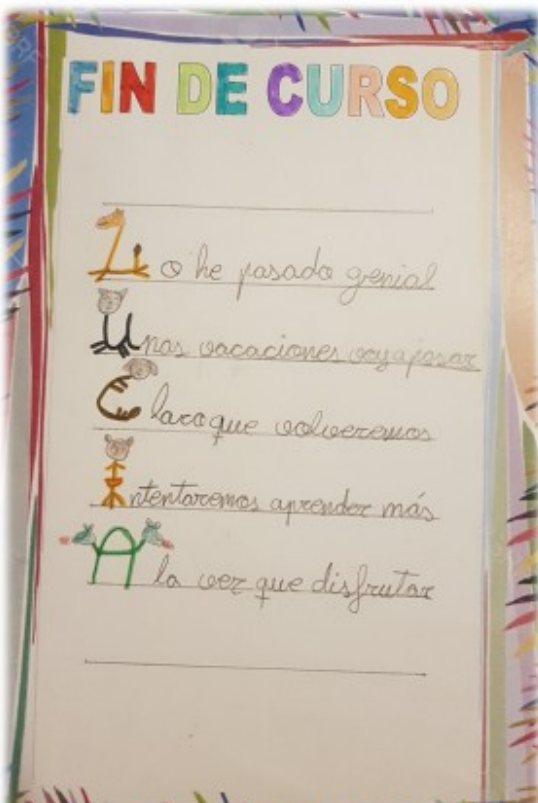 FIN DE CURSO
Lo he pasado genial
Unas vacaciones voy a pasar
Claro que volveremos
Intentaremos aprender más
A la vez que disfrutar